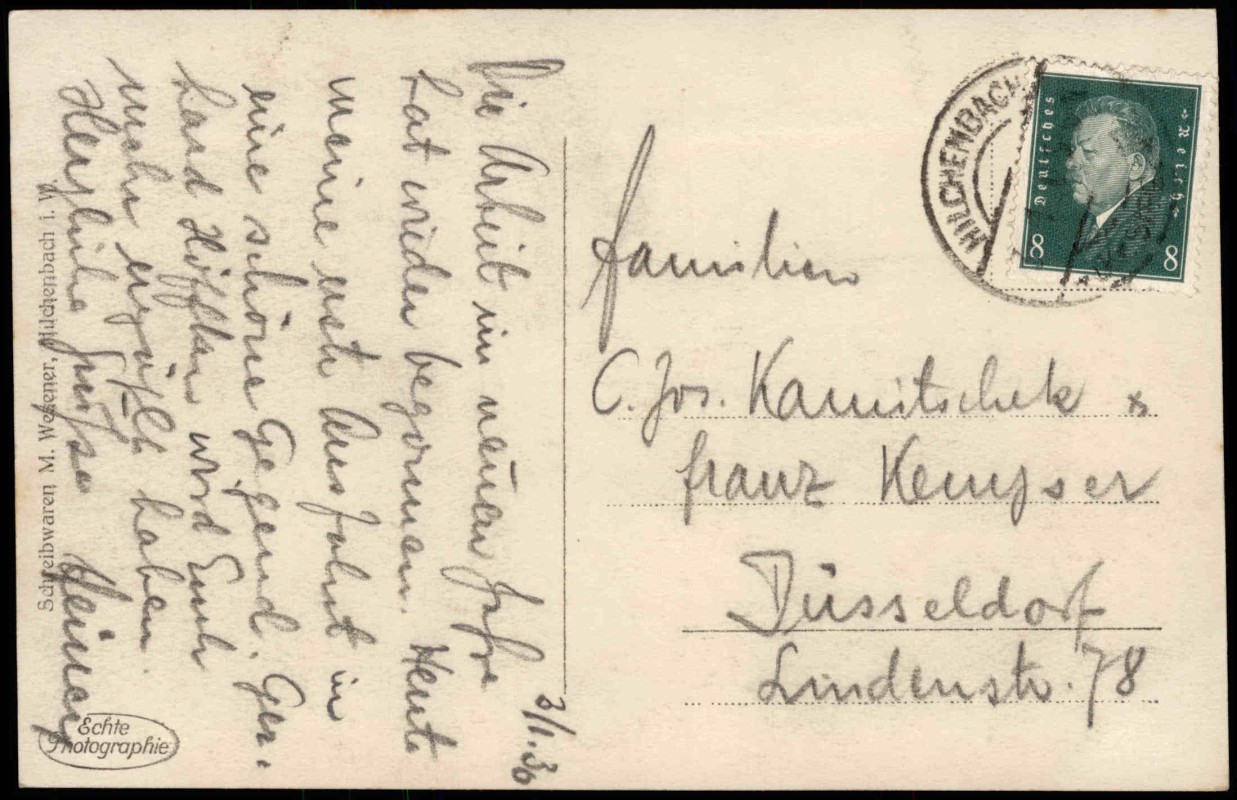 3/1.30
Die Arbeit im neuen Jahre
hat wieder begonnen. Heute
meine erste Ausfahrt in
eine schöne Gegend. Ger-
hard wird Euch
mehr erzählt haben.
Herzliche Grüße
Schreibwaren M. Wesener, Hilchenbach i. W.
Echte
Photographie
HILCHENBACH
Deutsches Reich
8 8
Familien
C. Jos. Kamitschek &
Franz Kempser
Düsseldorf
Lindenstr. 78